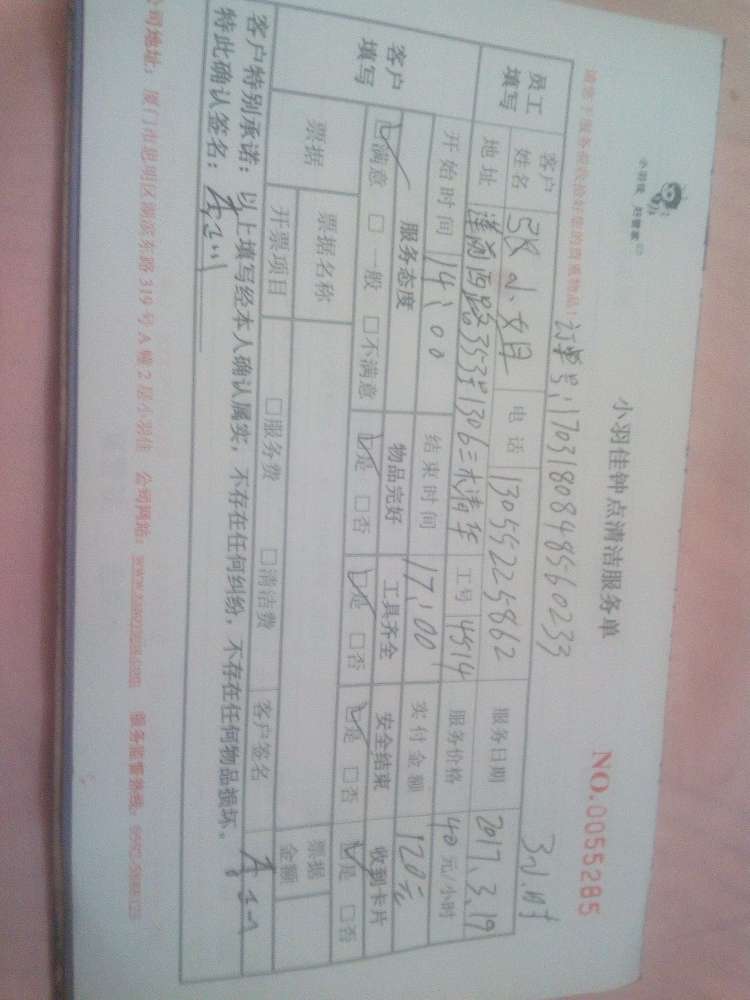 小羽佳 好管家
小羽佳钟点清洁服务单
NO.0055285
请您于服务前收拾好您的贵重物品!
订单号:1703180848560233
3小时
员工填写
客户姓名
电话 13055225862
服务日期 2017.3.19
地址 莲前西路353号1306三木清华
工号 4914
服务价格 40元/小时
客户填写
开始时间 14:00
结束时间 17:00
实付金额 120元
服务态度 物品完好 工具齐全 安全结束 收到卡片
☑满意 □一般 □不满意 ☑是 □否 ☑是 □否 ☑是 □否 ☑是 □否
票据
票据名称
票据金额
开票项目 □服务费 □清洁费
客户签名
客户特别承诺:以上填写经本人确认属实,不存在任何纠纷,不存在任何物品损坏。
特此确认签名:
公司地址:厦门市思明区湖滨东路319号A幢2层小羽佳 公司网站: 服务监督热线: